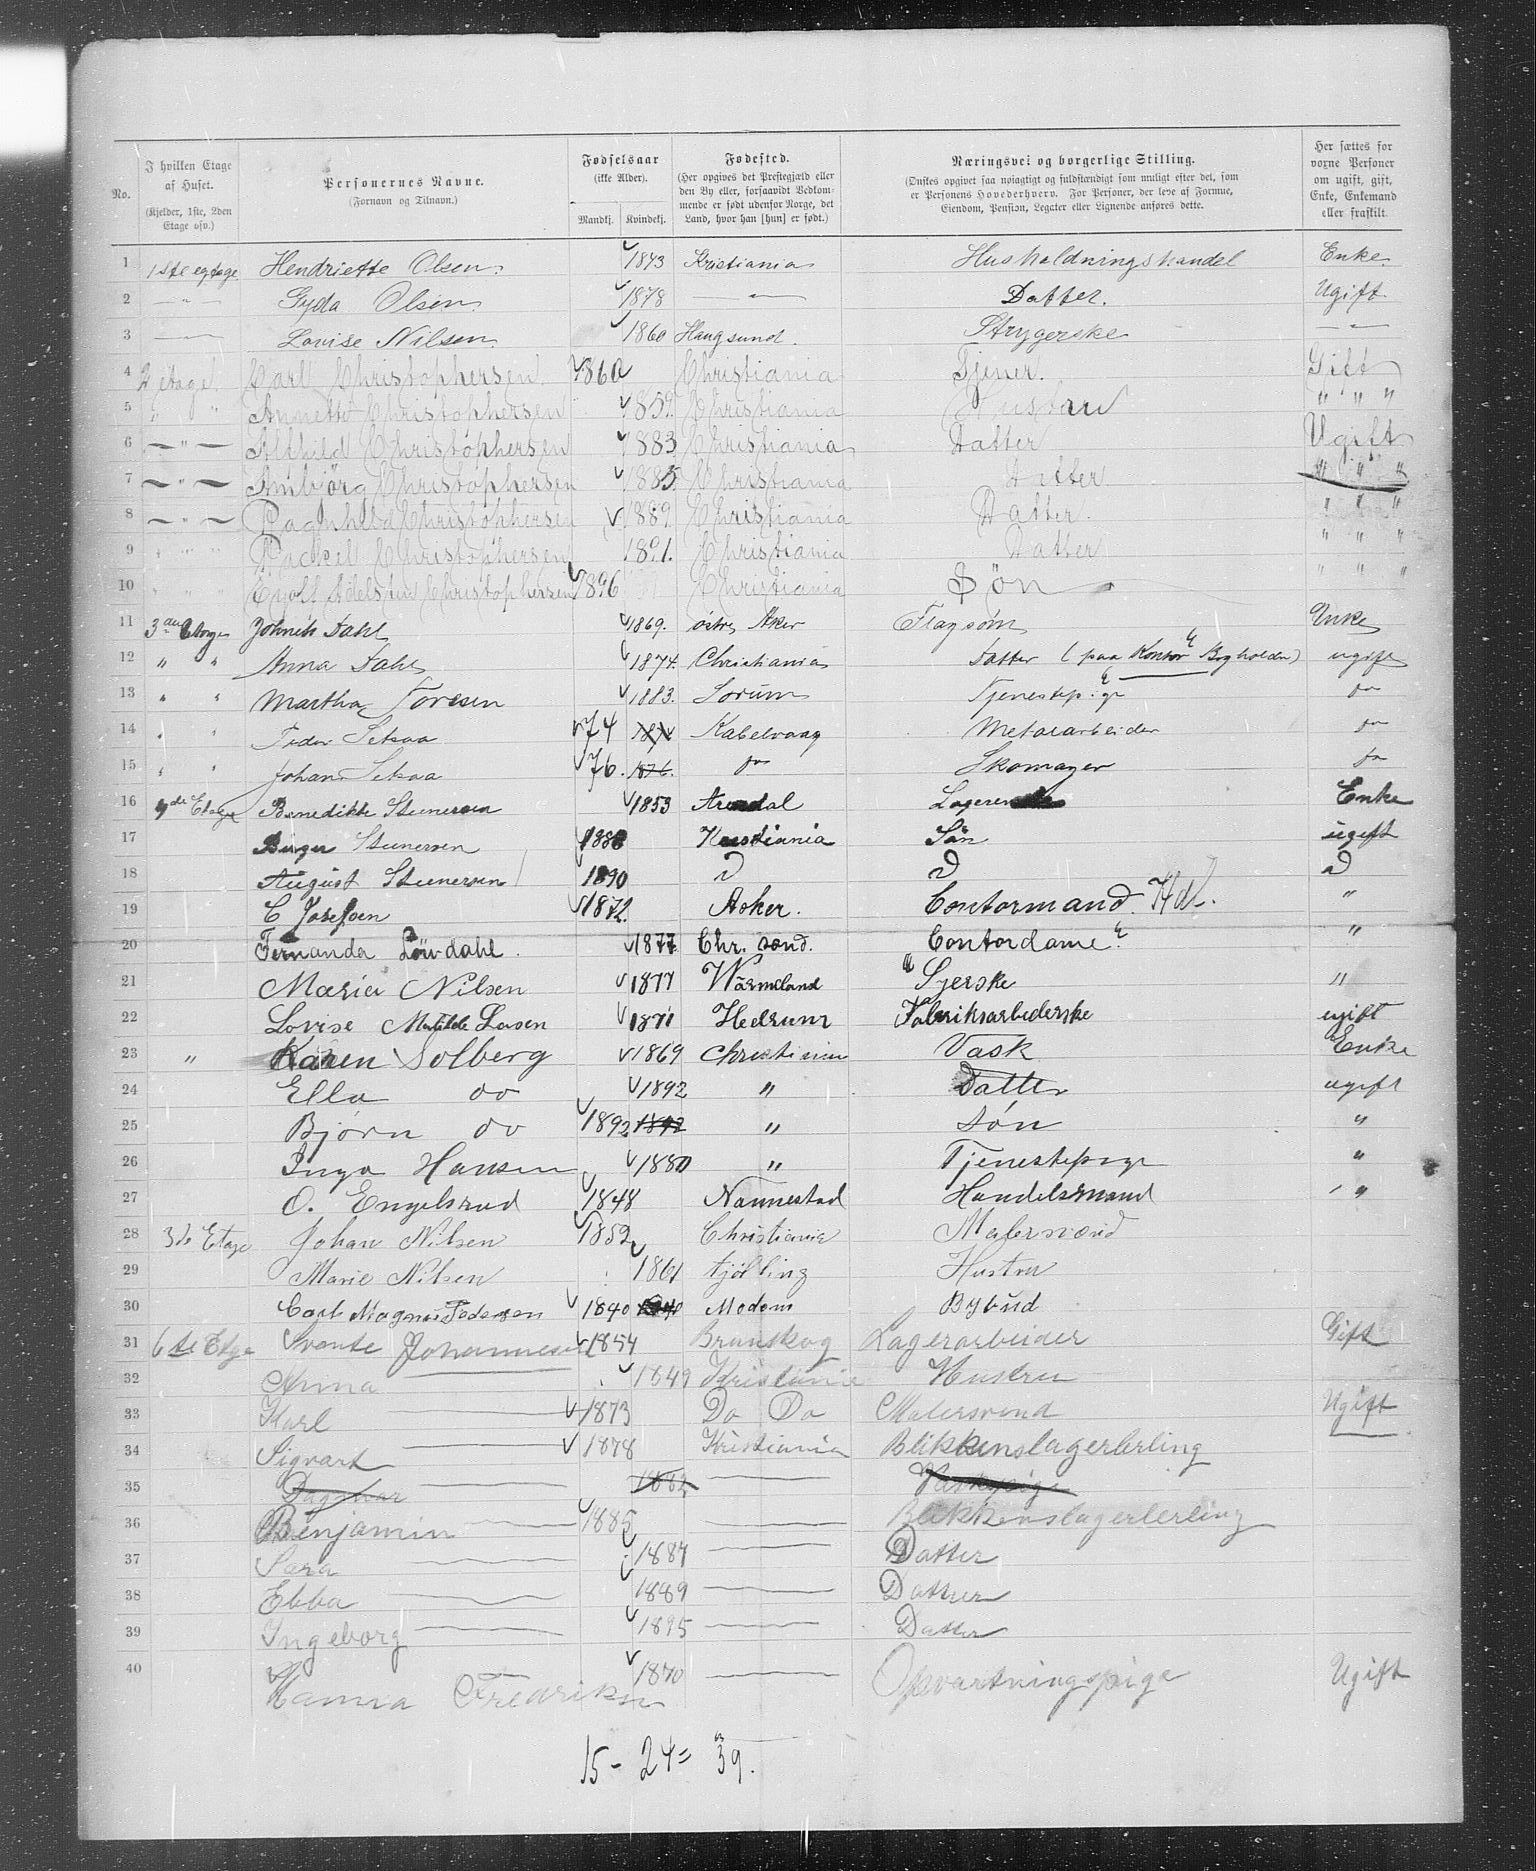 No.
I hvilken Etage af Huset. (Kjelder, 1ste, 2den Etage osv.)
Personernes Navne. (Fornavn og Tilnavn.)
Fødselsaar (ikke Alder). Mandkj. Kvindekj.
Fødested. (Her opgives det Prestegjæld eller den By eller, forsaavidt Vedkommende er født udenfor Norge, det Land, hvor han [hun] er født.)
Næringsvei og borgerlige Stilling. (Ønskes opgivet saa nøiagtigt og fuldstændigt som muligt efter det, som er Personens Hovederhverv. For Personer, der leve af Formue, Eiendom, Pension, Legater eller Lignende anføres dette.
Her sættes for voxne Personer om ugift, gift, Enke, Enkemand eller fraskilt.
1 1ste egtage Henriette Olsen. 1843 Kristiania Husholdningshandel Enke.
2 — " — Gyda Olsen. 1878 — " — Datter. Ugift.
3 — Lovise Nilsen. 1860 Haugsund. Strygerske — " —
4 2 etage. Carl Christophersen. 1860 Christiania Tjener. Gift
5 " " Annette Christophersen 1859. Christiania Hustru " " "
6 — " — Althild Christophersen 1883 Christiania Datter Ugift
7 — " — Ambjørg Christophersen 1885 Christiania Datter " " "
8 — " — Ragnhild Christophersen 1889. Christiania Datter. " " "
9 " " " Rackel Christophersen 1891. Christiania Datter " " "
10 " " " Eyolf Adelsten Christophersen 1896 Christiania Søn " " "
11 3die Etage Dahl 1869. østre Aker Enke
12 " " Anna Dahl 1874. Christiania Datter (paa Kontor Bogholder) ugift
13 " " Martha Toresen 1883. Sørum Tjenestepige do
14 " " Peder Setsaa 74 1874 Kabelvaag Metalarbeider do
15 " " Johan Setsaa 76. 1876. do Skomager do
16 Etage Benedikte Steenersen 1853 Arendal Enke
17 Birger Steenersen 1888 Kristiania Søn ugift
18 August Steenersen 1890 D D D
19 C Josefsen 1872. Asker. Contormand. Hdl. "
20 Fernanda Løvdahl. 1877. Chr. sand. Contordame "
21 Maria Nilsen 1877 Wärmeland Syerske "
22 Lovise Matilde Larsen 1871 Hedrum Fabriksarbederske ugift
23 " Karen Solberg 1869 Christiania Vask Enke
24 Ella do 1892 " Datter ugift
25 Bjørn do 1892 1892 " Søn "
26 Inga Hansen 1880 " Tjenestepige "
27 O. Engelsrud 1848 Nannestad Handelsmand "
28 3de Etage Johan Nilsen 1852 Christiania Malersvend
29 Marie Nilsen 1861 tjölling Hustru
30 Carl Magnus Pedersen 1840 1840 Modum Bybud
31 6te Etage Svante Johannesen 1854 Brunskog Lagerarbeider Gift
32 Anna — 1849 Kristiania Hustru
33 Karl — 1873 Do Do Malersvend Ugift
34 Sigvart — 1878 Kristiania Blikkenslagerlerling
35 Dagmar 1882 — Vaskepige
36 Benjamin — 1885 — Blikkenslagerlerling
37 Sara — 1887 — Datter
38 Ebba — 1889 — Datter
39 Ingeborg — 1895 — Datter
40 Hanna Fredriksen 1870 — Opvartningspige Ugift
15 - 24 = 39.